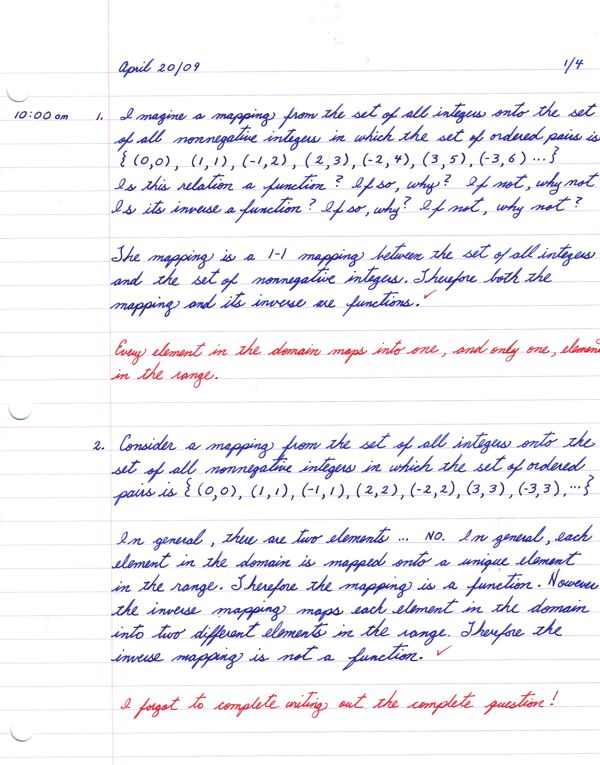 April 20/09 1/4
10:00 am 1. Imagine a mapping from the set of all integers onto the set
of all nonnegative integers in which the set of ordered pairs is
{ (0,0), (1,1), (-1,2), (2,3), (-2,4), (3,5), (-3,6) ...}
Is this relation a function? If so, why? If not, why not
Is its inverse a function? If so, why? If not, why not?
The mapping is a 1-1 mapping between the set of all integers
and the set of nonnegative integers. Therefore both the
mapping and its inverse are functions. ✓
Every element in the domain maps into one, and only one, elemen
in the range.
2. Consider a mapping from the set of all integers onto the
set of all nonnegative integers in which the set of ordered
pairs is { (0,0), (1,1), (-1,1), (2,2), (-2,2), (3,3), (-3,3), ...}
In general, there are two elements ... NO. In general, each
element in the domain is mapped onto a unique element
in the range. Therefore the mapping is a function. However
the inverse mapping maps each element in the domain
into two different elements in the range. Therefore the
inverse mapping is not a function. ✓
I forgot to complete writing out the complete question!